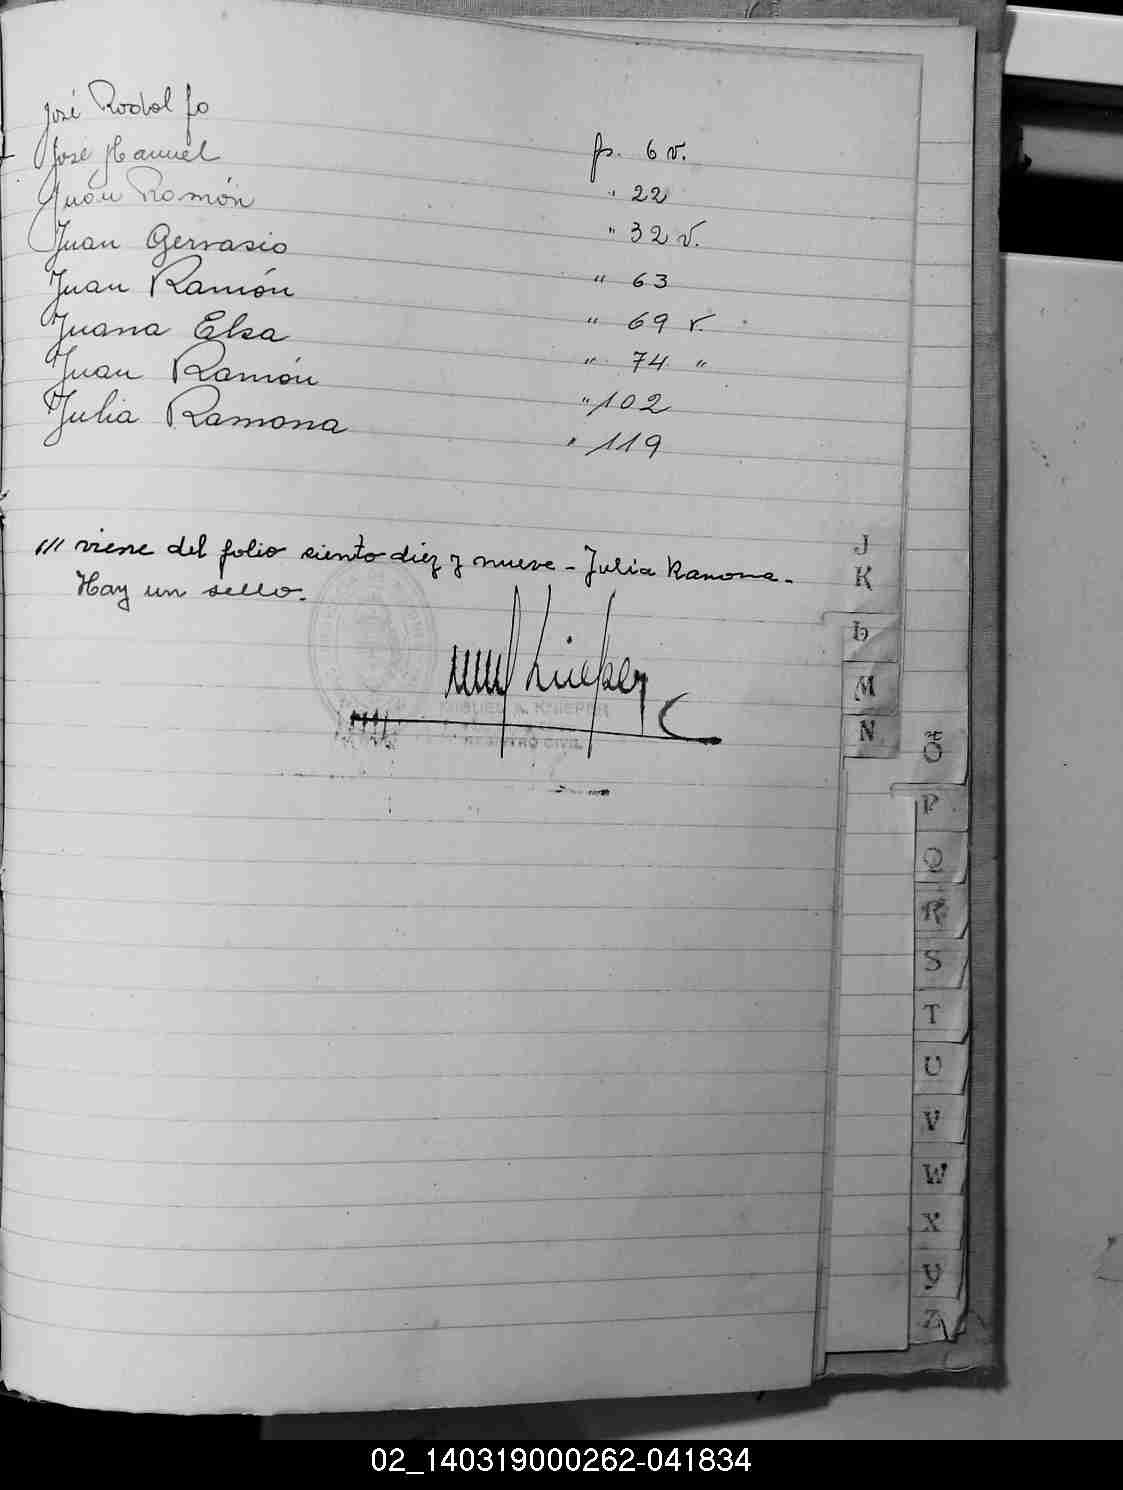 José Rodolfo
José Manuel fs. 6 v.
Juan Ramón " 22
Juan Gervasio " 32 v.
Juan Ramón " 63
Juana Elsa " 69 v.
Juan Ramón " 74 "
Julia Ramona " 102
" 119
/// viene del folio ciento diez y nueve - Julia Ramona -
Hay un sello.
MIGUEL A. KNIEPER
REGISTRO CIVIL
J
K
L
M
N
Ñ
O
P
Q
R
S
T
U
V
W
X
Y
Z
02_140319000262-041834